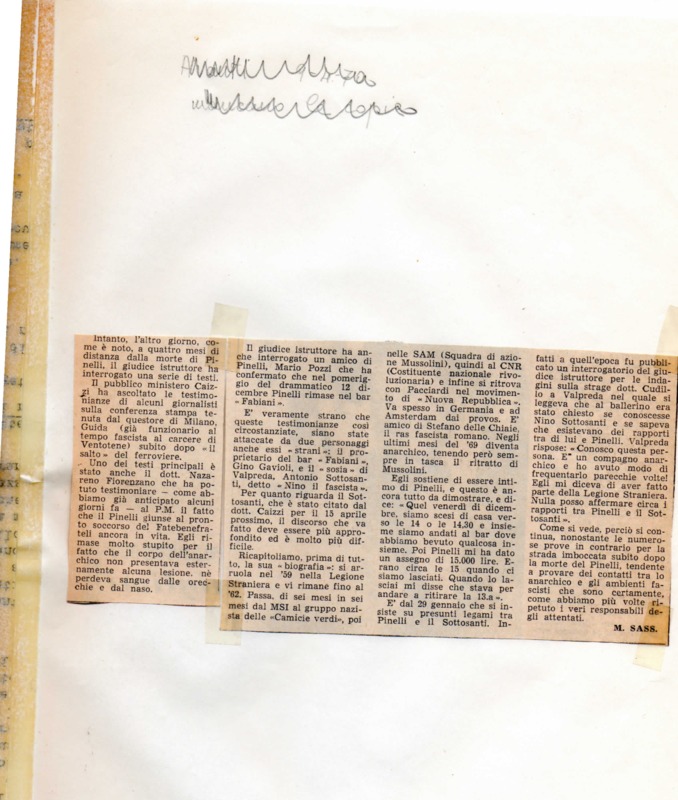 Intanto, l'altro giorno, co-
me è noto, a quattro mesi di
distanza dalla morte di Pi-
nelli, il giudice istruttore ha
interrogato una serie di testi.
Il pubblico ministero Caiz-
zi ha ascoltato le testimo-
nianze di alcuni giornalisti
sulla conferenza stampa te-
nuta dal questore di Milano,
Guida (già funzionario al
tempo fascista al carcere di
Ventotene) subito dopo «il
salto» del ferroviere.
Uno dei testi principali è
stato anche il dott. Naza-
reno Fiorenzano che ha po-
tuto testimoniare — come ab-
biamo già anticipato alcuni
giorni fa — al P.M. il fatto
che il Pinelli giunse al pronto
soccorso del Fatebenefra-
telli ancora in vita. Egli ri-
mase molto stupito per il
fatto che il corpo dell'anar-
chico non presentava ester-
namente alcuna lesione, nè
perdeva sangue dalle orec-
chie e dal naso.
Il giudice istruttore ha an-
che interrogato un amico di
Pinelli, Mario Pozzi che ha
confermato che nel pomerig-
gio del drammatico 12 di-
cembre Pinelli rimase nel bar
«Fabiani».
E' veramente strano che
queste testimonianze così
circostanziate, siano state
attaccate da due personaggi
anche essi «strani»; il pro-
prietario del bar «Fabiani»,
Gino Gavioli, e il «sosia» di
Valpreda, Antonio Sottosan-
ti, detto «Nino il fascista».
Per quanto riguarda il Sot-
tosanti, che è stato citato dal
dott. Caizzi per il 15 aprile
prossimo, il discorso che va
fatto deve essere più appro-
fondito ed è molto più dif-
ficile.
Ricapitoliamo, prima di tut-
to, la sua «biografia»: si ar-
ruola nel '59 nella Legione
Straniera e vi rimane fino al
'62. Passa, di sei mesi in sei
mesi dal MSI al gruppo nazi-
sta delle «Camicie verdi», poi
nelle SAM (Squadra di azio-
ne Mussolini), quindi al CNR
(Costituente nazionale rivo-
luzionaria) e infine si ritrova
con Pacciardi nel movimen-
to di «Nuova Repubblica».
Va spesso in Germania e ad
Amsterdam dai provos. E'
amico di Stefano delle Chiaie,
il ras fascista romano. Negli
ultimi mesi del '69 diventa
anarchico, tenendo però sem-
pre in tasca il ritratto di
Mussolini.
Egli sostiene di essere inti-
mo di Pinelli, e questo è an-
cora tutto da dimostrare, e di-
ce: «Quel venerdì di dicem-
bre, siamo scesi di casa ver-
so le 14 o le 14,30 e insie-
me siamo andati al bar dove
abbiamo bevuto qualcosa in-
sieme. Poi Pinelli mi ha dato
un assegno di 15.000 lire. E-
rano circa le 15 quando ci
siamo lasciati. Quando lo la-
sciai mi disse che stava per
andare a ritirare la 13.a».
E' dal 29 gennaio che si in-
siste su presunti legami tra
Pinelli e il Sottosanti. In-
fatti a quell'epoca fu pubbli-
cato un interrogatorio del giu-
dice istruttore per le inda-
gini sulla strage dott. Cudil-
lo a Valpreda nel quale si
leggeva che al ballerino era
stato chiesto se conoscesse
Nino Sottosanti e se sapeva
che esistevano dei rapporti
tra di lui e Pinelli. Valpreda
rispose: «Conosco questa per-
sona. E' un compagno anar-
chico e ho avuto modo di
frequentarlo parecchie volte!
Egli mi diceva di aver fatto
parte della Legione Straniera.
Nulla posso affermare circa i
rapporti tra Pinelli e il Sot-
tosanti».
Come si vede, perciò si con-
tinua, nonostante le numero-
se prove in contrario per la
strada imboccata subito dopo
la morte del Pinelli, tendente
a provare dei contatti tra lo
anarchico e gli ambienti fa-
scisti che sono certamente,
come abbiamo più volte ri-
petuto i veri responsabili de-
gli attentati.
M. SASS.